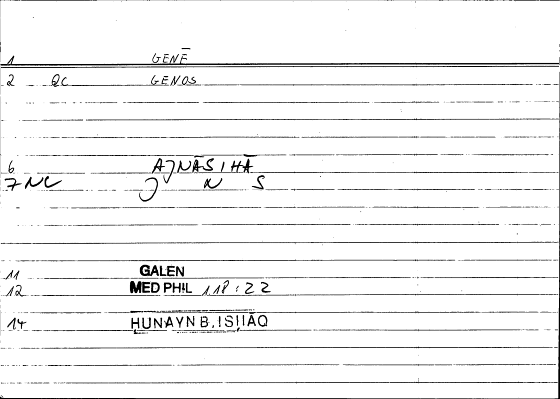 1 GENĒ
2 QC GENOS
6 AJNĀSIHĀ
7 NC J N S
11 GALEN
12 MED PHIL 118:22
14 ḤUNAYN B. ISḤĀQ